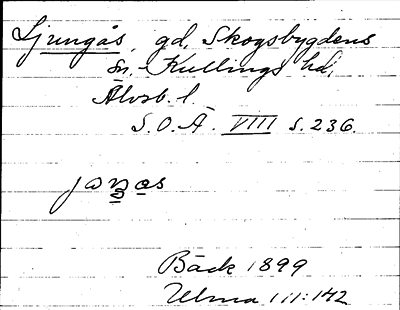 Ljungås, gd, Skogsbygdens
sn. Kullings hd,
Älvsb. l.
S.O.Ä. VIII s. 236.
Bäck 1899
Ulma 111:142